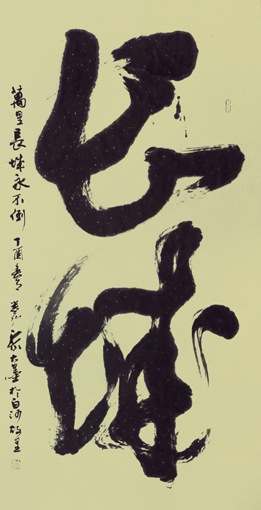 长城
萬里長城永不倒 丁酉春 大墨於白沙